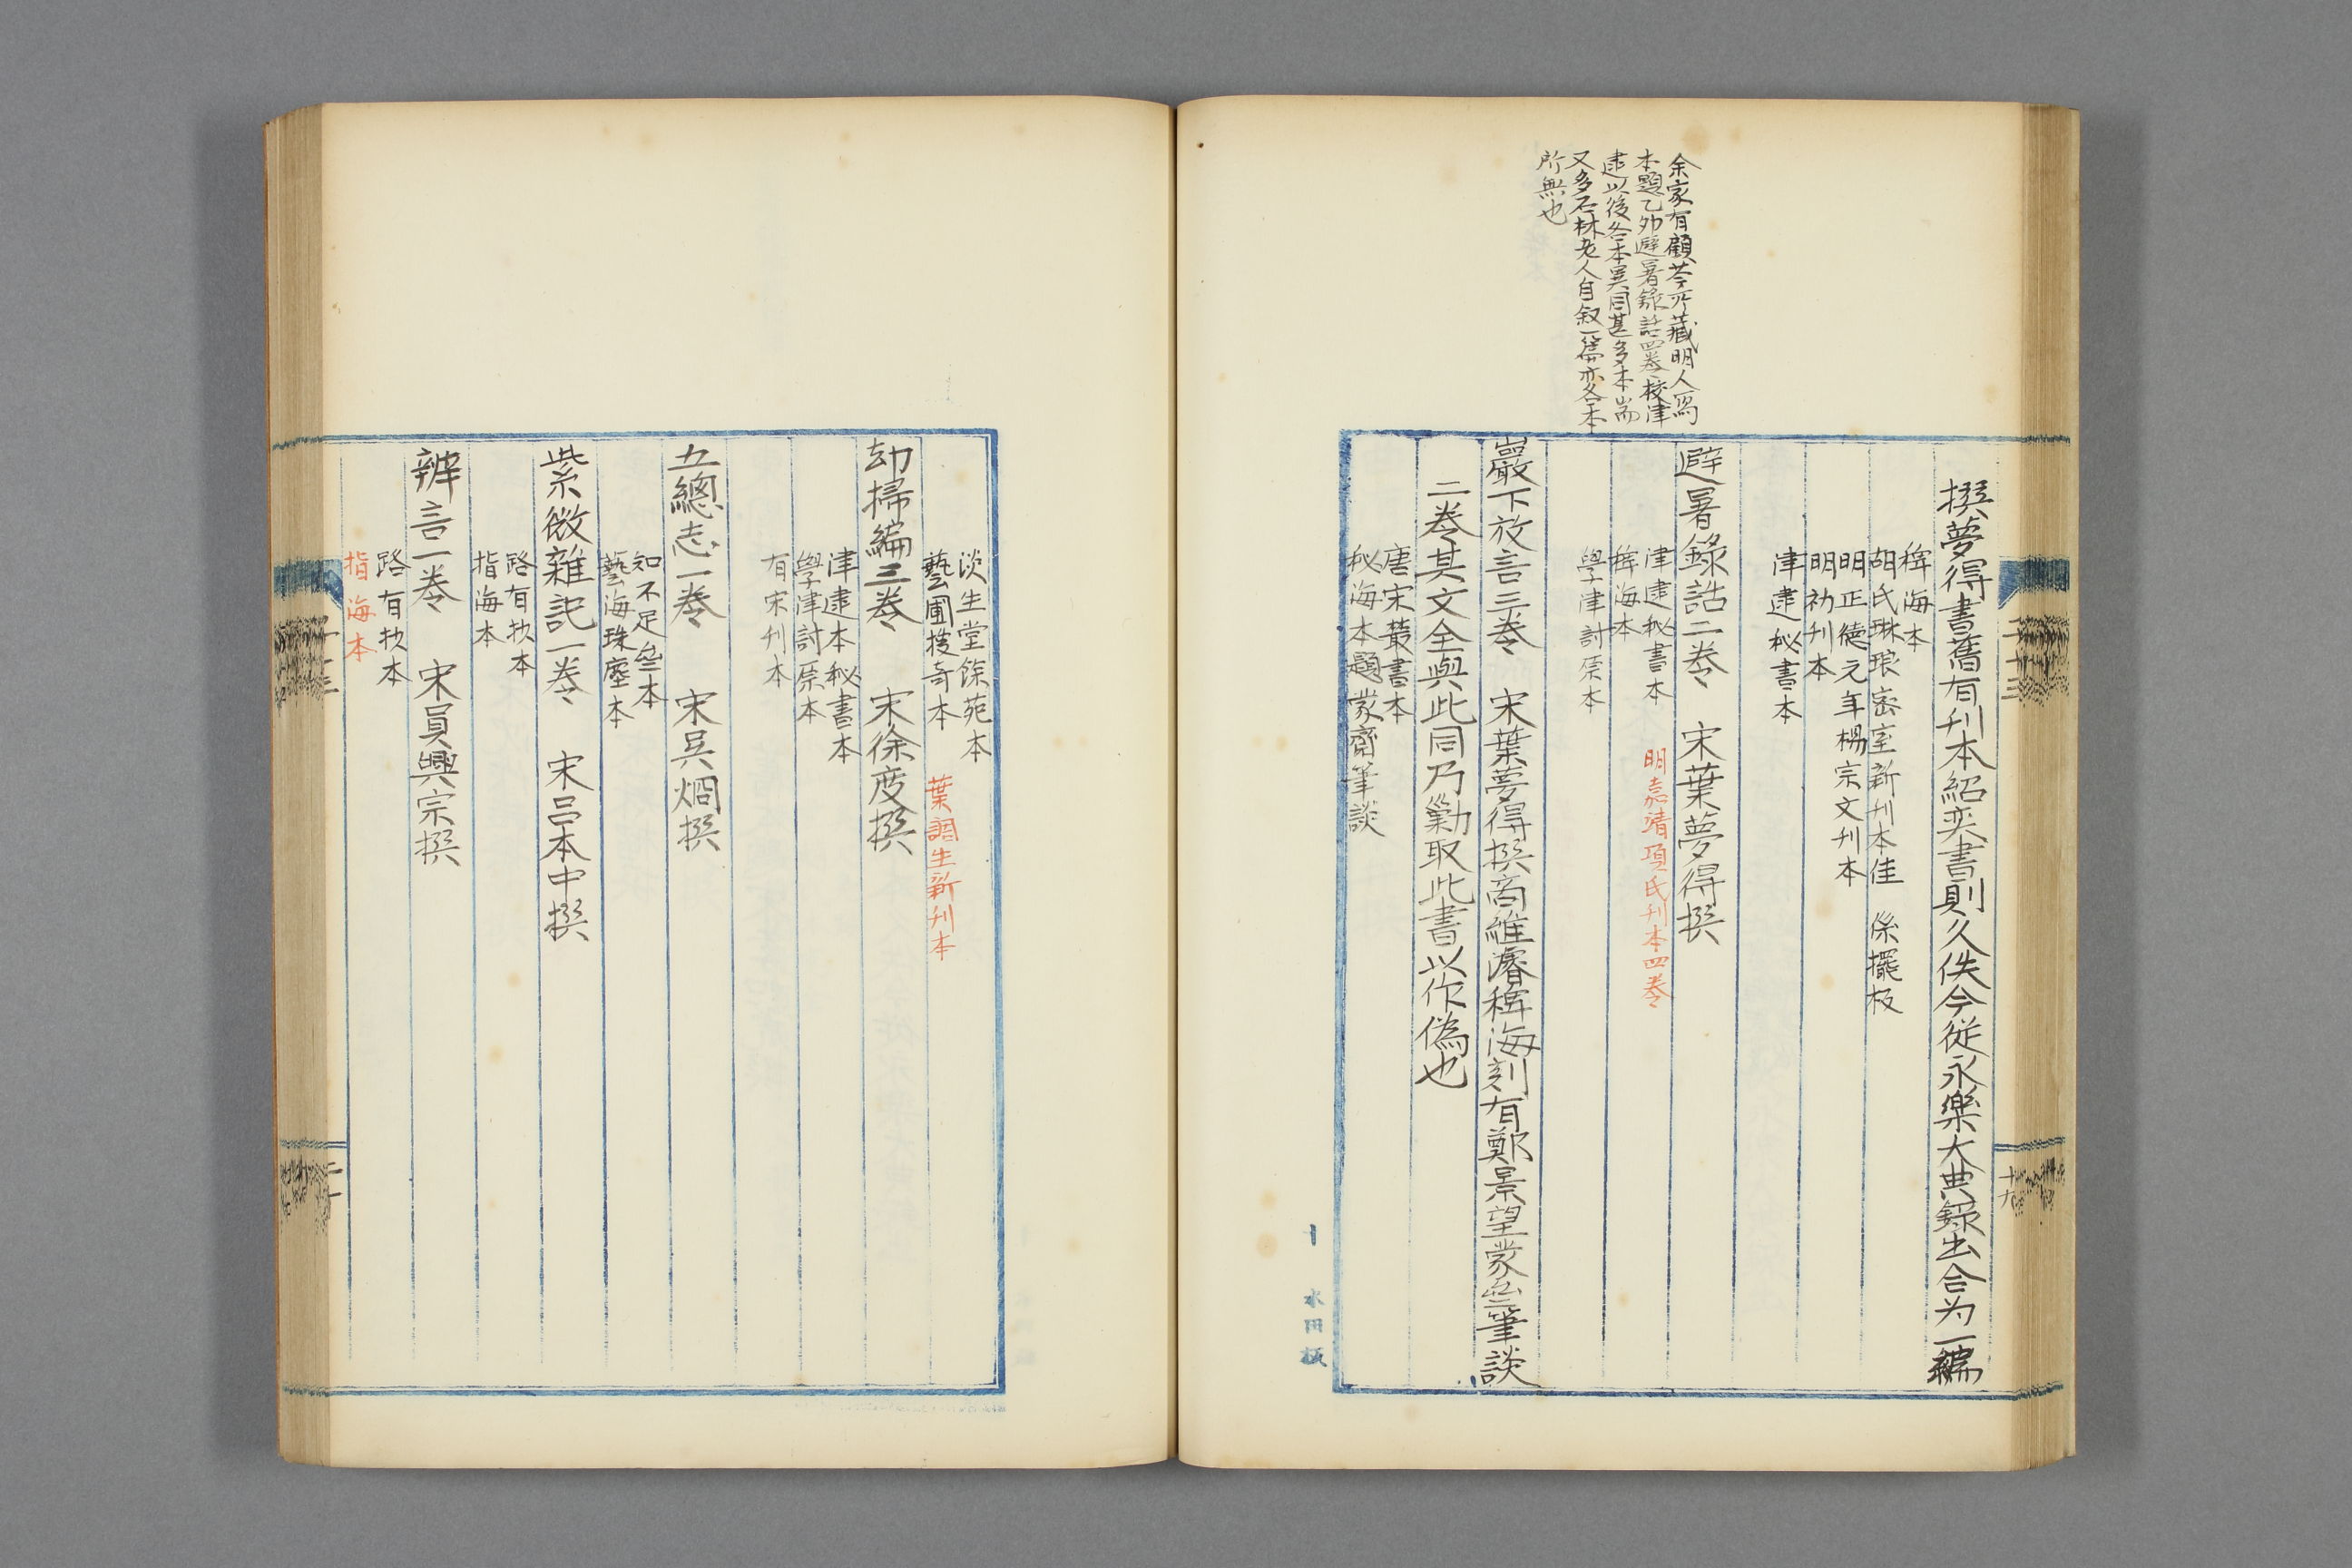 余家有顧苓所藏明人寫
本題乙卯避暑錄話四卷校津
逮以後各本異同甚多本耑
又多石林老人自敘一篇亦各本
所無也
撰夢得書舊有刊本紹奕書則久佚今從永樂大典錄出合为一編
稗海本
胡氏琳琅密室新刊本佳 係擺板
明正德元年楊宗文刊本
明初刊本
津逮秘書本
避暑錄話二卷 宋葉夢得撰
津逮秘書本 明嘉靖項氏刊本四卷
稗海本
學津討原本
巖下放言三卷 宋葉夢得撰商維濬稗海刻有鄭景望蒙齋筆談
二卷其文全與此同乃勦取此書以作偽也
唐宋叢書本
秘海本題蒙齋筆談
二十三
十九
十 水田板
淡生堂餘苑本
藝圃搜奇本 葉調生新刊本
却掃編三卷 宋徐度撰
津逮本秘書本
學津討原本
有宋刊本
五總志一卷 宋吳炯撰
知不足叁本
藝海珠塵本
紫微雜記一卷 宋呂本中撰
路有抄本
指海本
辨言一卷 宋員興宗撰
路有抄本
指海本